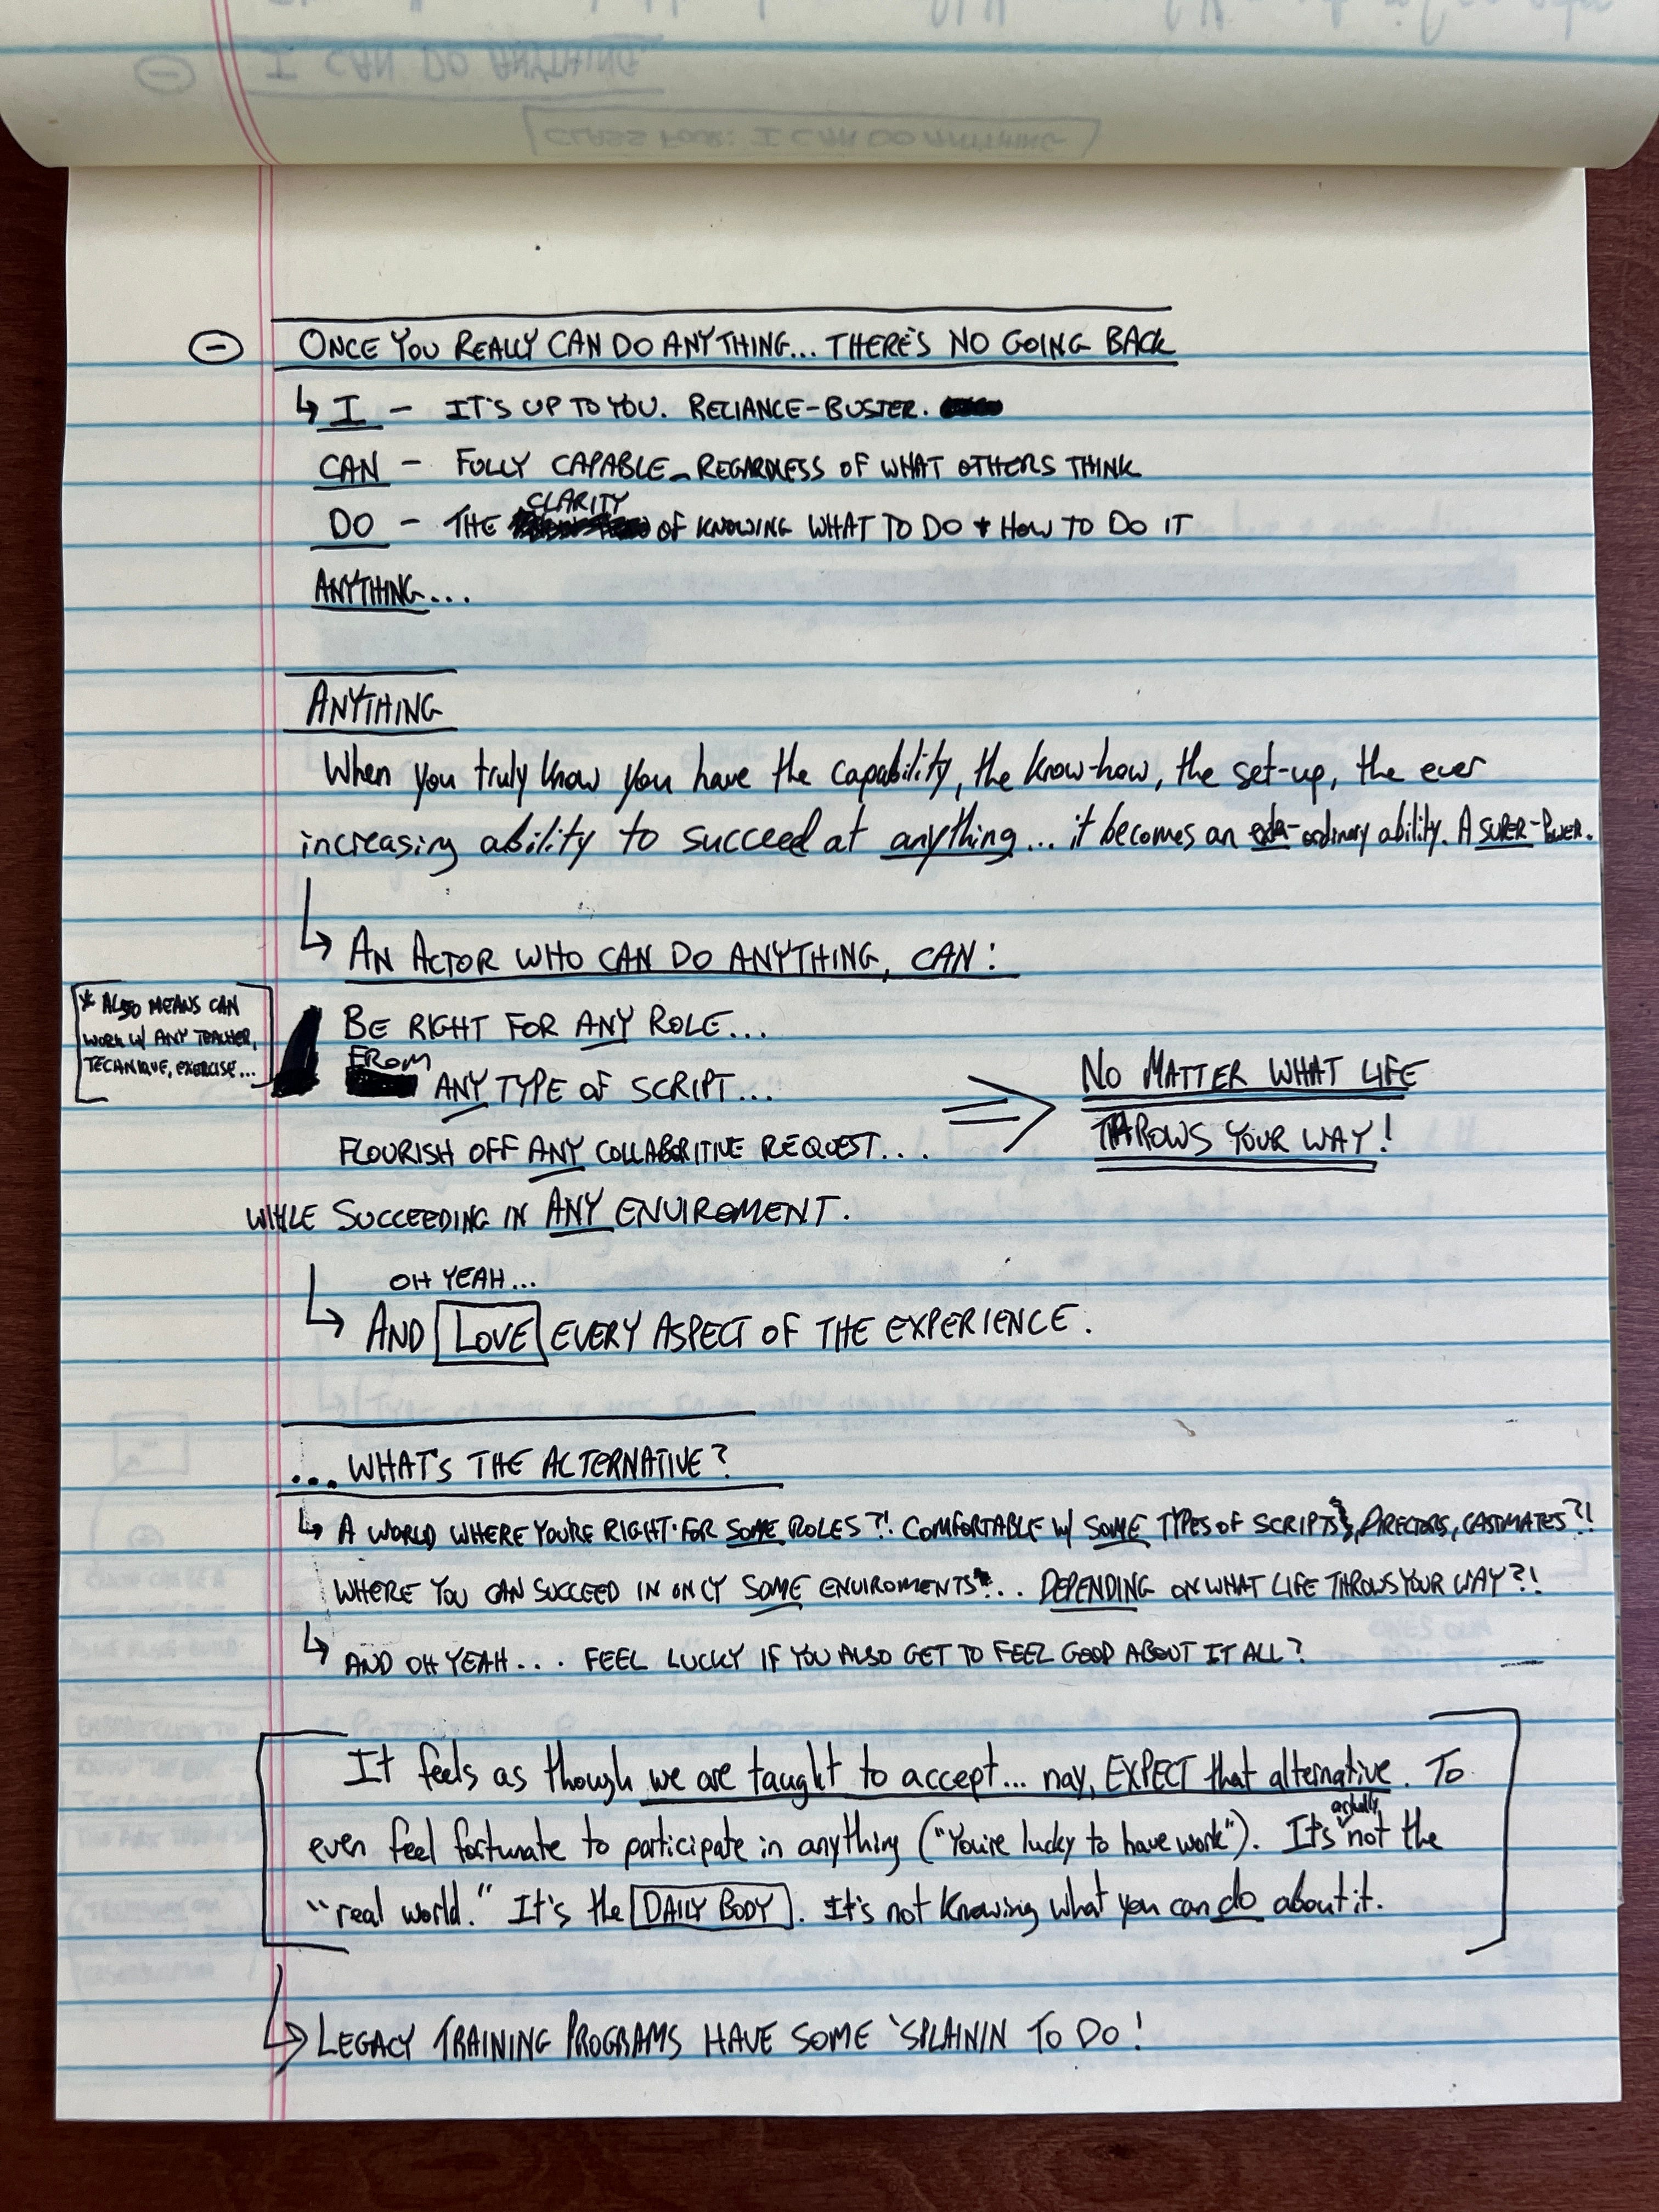 I CAN DO ANYTHING
CLASS FOUR: I CAN DO ANYTHING
ONCE YOU REALLY CAN DO ANYTHING... THERE'S NO GOING BACK
↳ I - IT'S UP TO YOU. RELIANCE-BUSTER.
CAN - FULLY CAPABLE - REGARDLESS OF WHAT OTHERS THINK
CLARITY
DO - THE OF KNOWING WHAT TO DO + HOW TO DO IT
ANYTHING...
ANYTHING
When you truly know you have the capability, the know-how, the set-up, the ever
increasing ability to succeed at anything... it becomes an extra-ordinary ability. A SUPER-POWER.
↳ AN ACTOR WHO CAN DO ANYTHING, CAN:
* ALSO MEANS CAN
WORK W/ ANY TEACHER,
TECHNIQUE, EXERCISE...
BE RIGHT FOR ANY ROLE...
FROM
ANY TYPE OF SCRIPT...
FLOURISH OFF ANY COLLABORITIVE REQUEST...
WHILE SUCCEEDING IN ANY ENVIROMENT.
⇒ NO MATTER WHAT LIFE
THROWS YOUR WAY!
OH YEAH...
↳ AND LOVE EVERY ASPECT OF THE EXPERIENCE.
... WHAT'S THE ALTERNATIVE?
↳ A WORLD WHERE YOU'RE RIGHT FOR SOME ROLES?! COMFORTABLE W/ SOME TYPES OF SCRIPTS, DIRECTORS, CASTMATES?!
WHERE YOU CAN SUCCEED IN ONLY SOME ENVIROMENTS... DEPENDING ON WHAT LIFE THROWS YOUR WAY?!
↳ AND OH YEAH... FEEL LUCKY IF YOU ALSO GET TO FEEL GOOD ABOUT IT ALL?
It feels as though we are taught to accept... nay, EXPECT that alternative. To
even feel fortunate to participate in anything ("You're lucky to have work"). It's actually not the
"real world." It's the DAILY BODY. It's not knowing what you can do about it.
↳ LEGACY TRAINING PROGRAMS HAVE SOME 'SPLAININ TO DO!